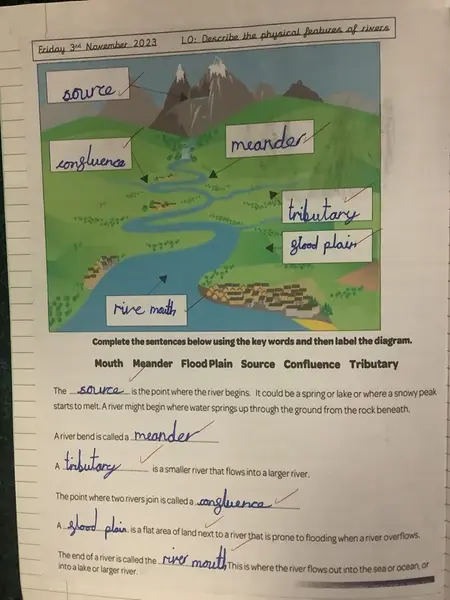 Friday 3rd November 2023 LO: Describe the physical features of rivers
source
confluence
meander
tributary
glood plain
rive mouth
Complete the sentences below using the key words and then label the diagram.
Mouth Meander Flood Plain Source Confluence Tributary
The source is the point where the river begins. It could be a spring or lake or where a snowy peak
starts to melt. A river might begin where water springs up through the ground from the rock beneath.
A river bend is called a meander
A tributary is a smaller river that flows into a larger river.
The point where two rivers join is called a confluence
A glood plain is a flat area of land next to a river that is prone to flooding when a river overflows.
The end of a river is called the river mouth This is where the river flows out into the sea or ocean, or
into a lake or larger river.